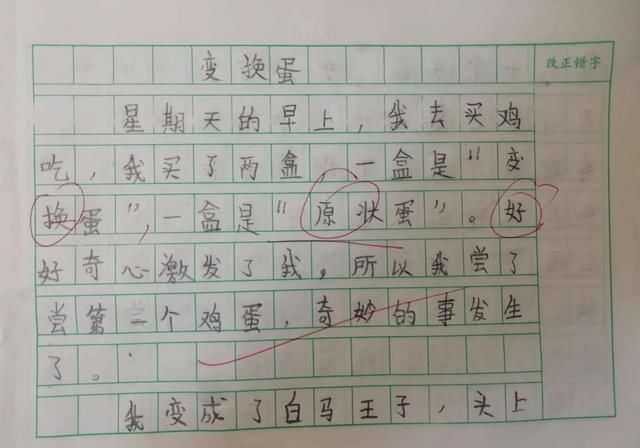 变换蛋
改正错字
星期天的早上，我去买鸡
吃，我买了两盒，一盒是“变
换蛋”，一盒是“原状蛋”。好
好奇心激发了我，所以我尝了
尝第一个鸡蛋，奇妙的事发生
了。
我变成了白马王子，头上